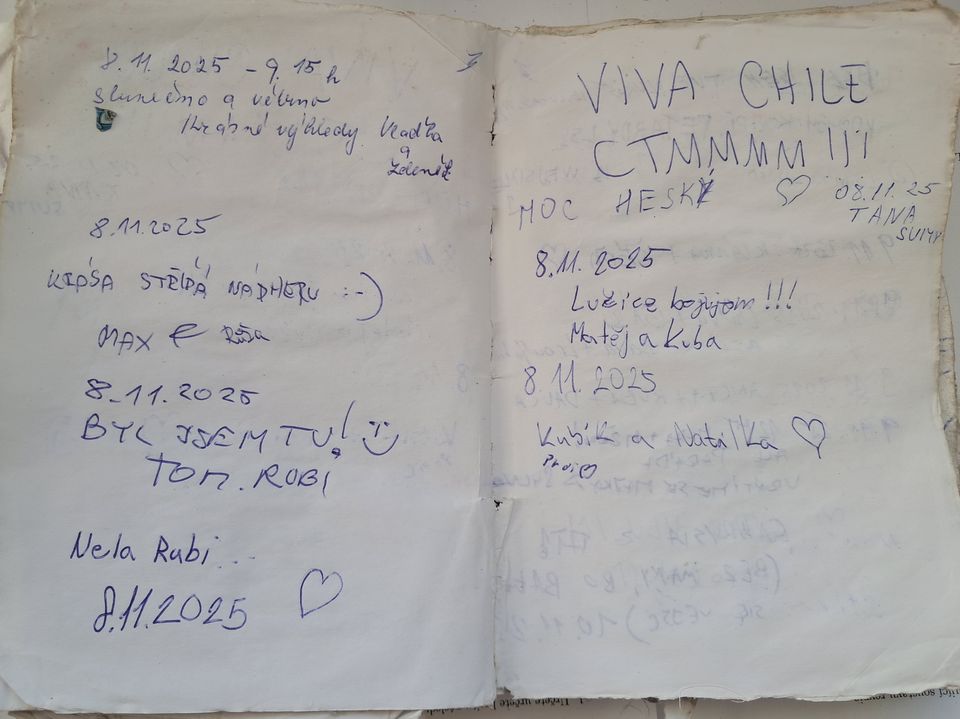 8.11.2025 - 9.15 h
Slunečno a větrno
Krásné výhledy Vlaďka
a
Zdeněk
8.11.2025
NÁDHERU :-)
MAX
8.11.2025
BYL JSEM TU!
TOM. RUBI
Nela Rubi ..
8.11.2025
VIVA CHILE
CTMMMM!!!
MOC HESKÝ
08.11.25
TANA
8.11.2025
Lužice bojujem!!!
Matěj a Kuba
8.11.2025
Kubík a Natálka